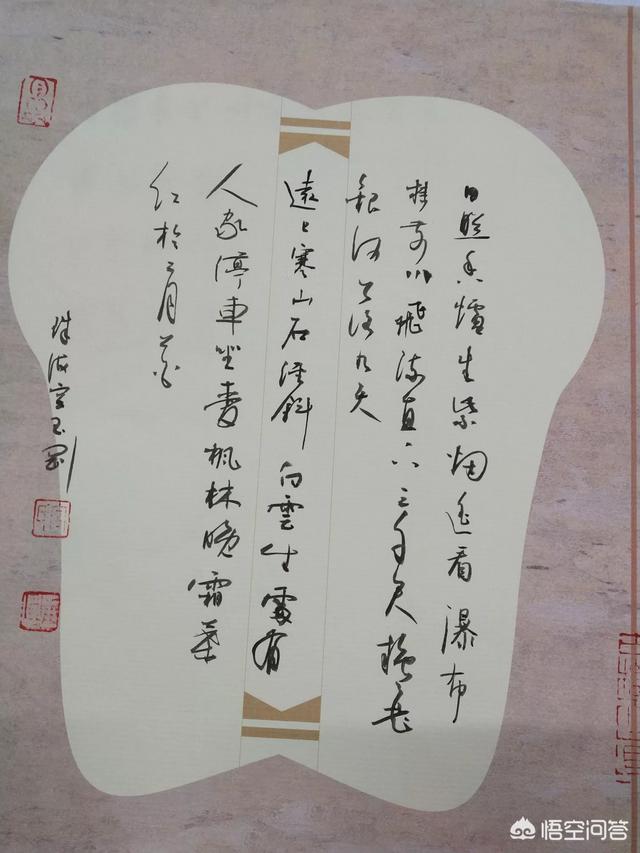 日照香爐生紫烟遥看瀑布
掛前川飛流直下三千尺疑是
銀河落九天
遠上寒山石徑斜白雲生處有
人家停車坐愛楓林晚霜葉
红於二月花
珠海宫玉剛
悟空问答